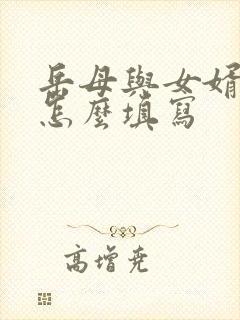 岳母與女婿
怎麼填寫
高增堯